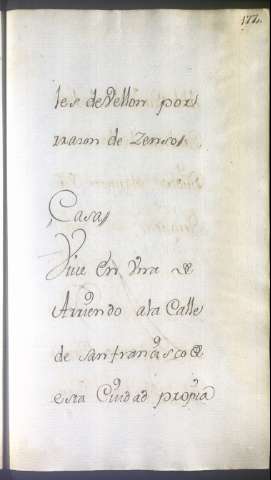 172.
les de Vellon por
rraron de Zensos
Casas
Vive en una de
Arriendo ala Calle
de san franco͡isco de
esta Ciudad propia